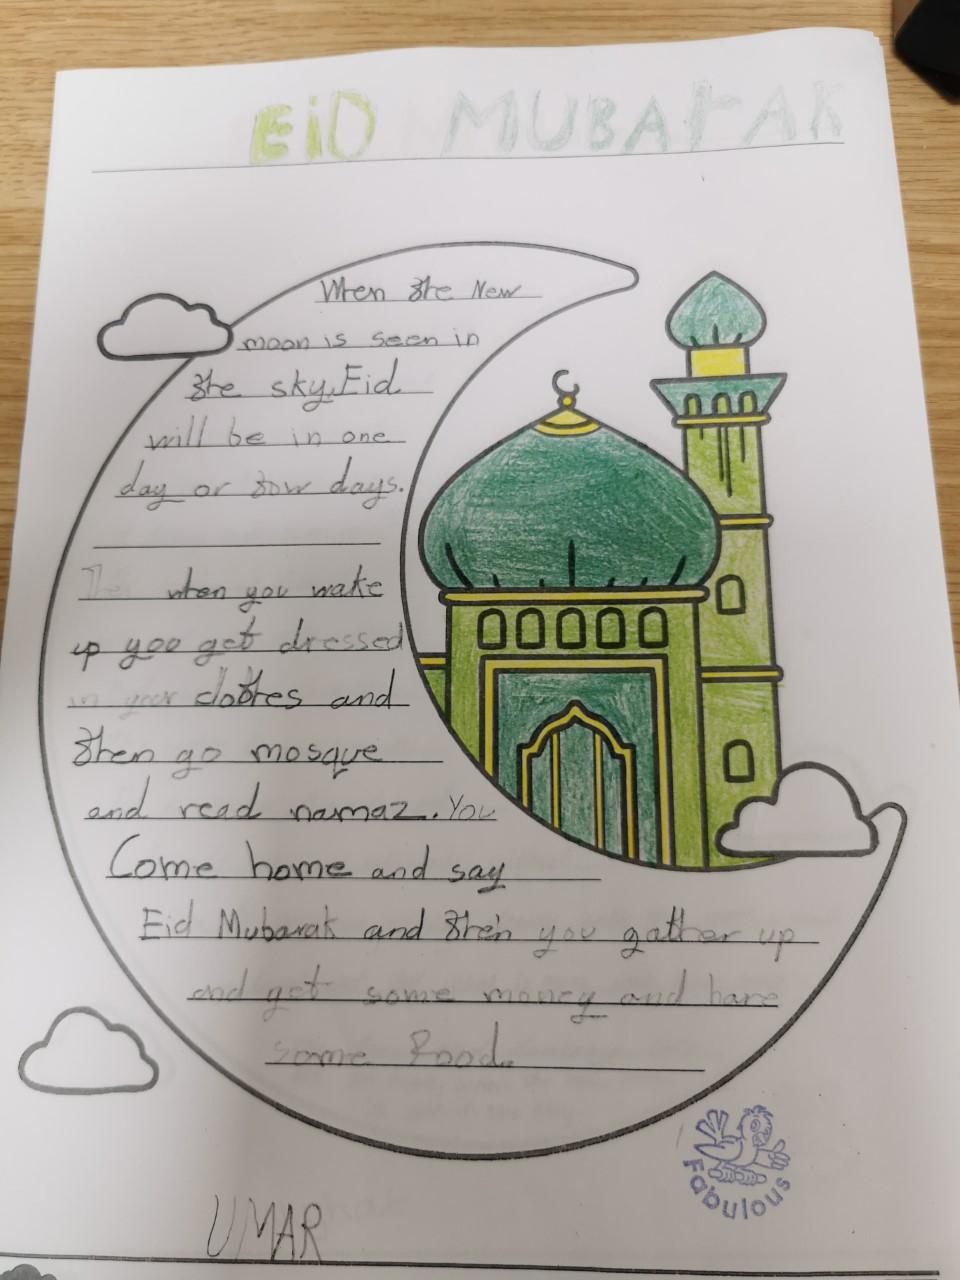 EiD MUBARAK
When the New
moon is seen in
the sky, Eid
will be in one
day or tow days.
when you wake
up yoo get dressed
in your clothes and
then go mosque
and read namaz. You
Come home and say
Eid Mubarak and then you gather up
and get some money and have
some food.
Fabulous
UMAR